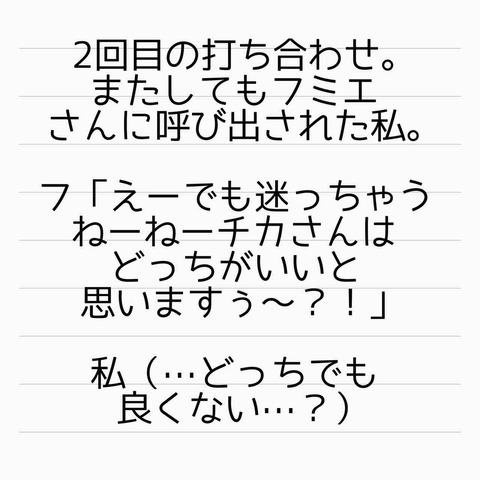 2回目の打ち合わせ。
またしてもフミエ
さんに呼び出された私。
フ「えーでも迷っちゃう
ねーねーチカさんは
どっちがいいと
思いますぅ〜？！」
私（…どっちでも
良くない…？）